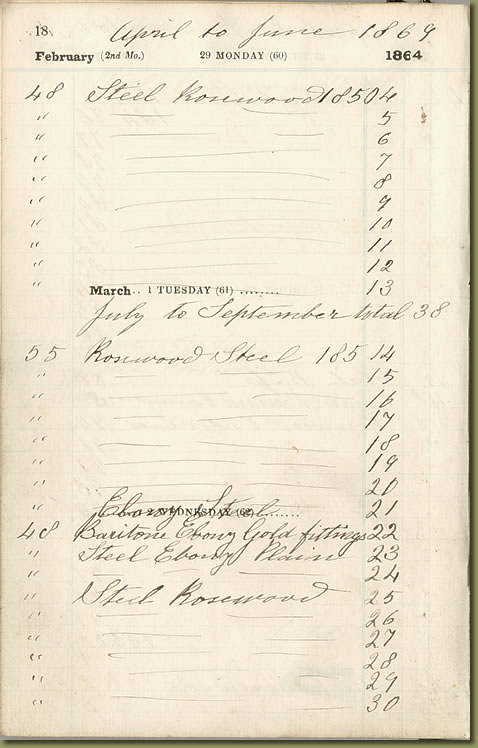 18 April to June 1869
February (2nd Mo.) 29 MONDAY (60) 1864
48 Steel Rosewood 18504
" 5
" 6
" 7
" 8
" 9
" 10
" 11
" 12
" March.. 1 TUESDAY (61) ......... 13
July to September total 38
55 Rosewood Steel 185 14
" 15
" 16
" 17
" 18
" 19
" 20
" Ebony Steel 21
2 WEDNESDAY (62) .........
48 Baritone Ebony Gold fittings 22
" Steel Ebony Plain 23
" 24
" Steel Rosewood 25
" 26
" 27
" 28
" 29
" 30